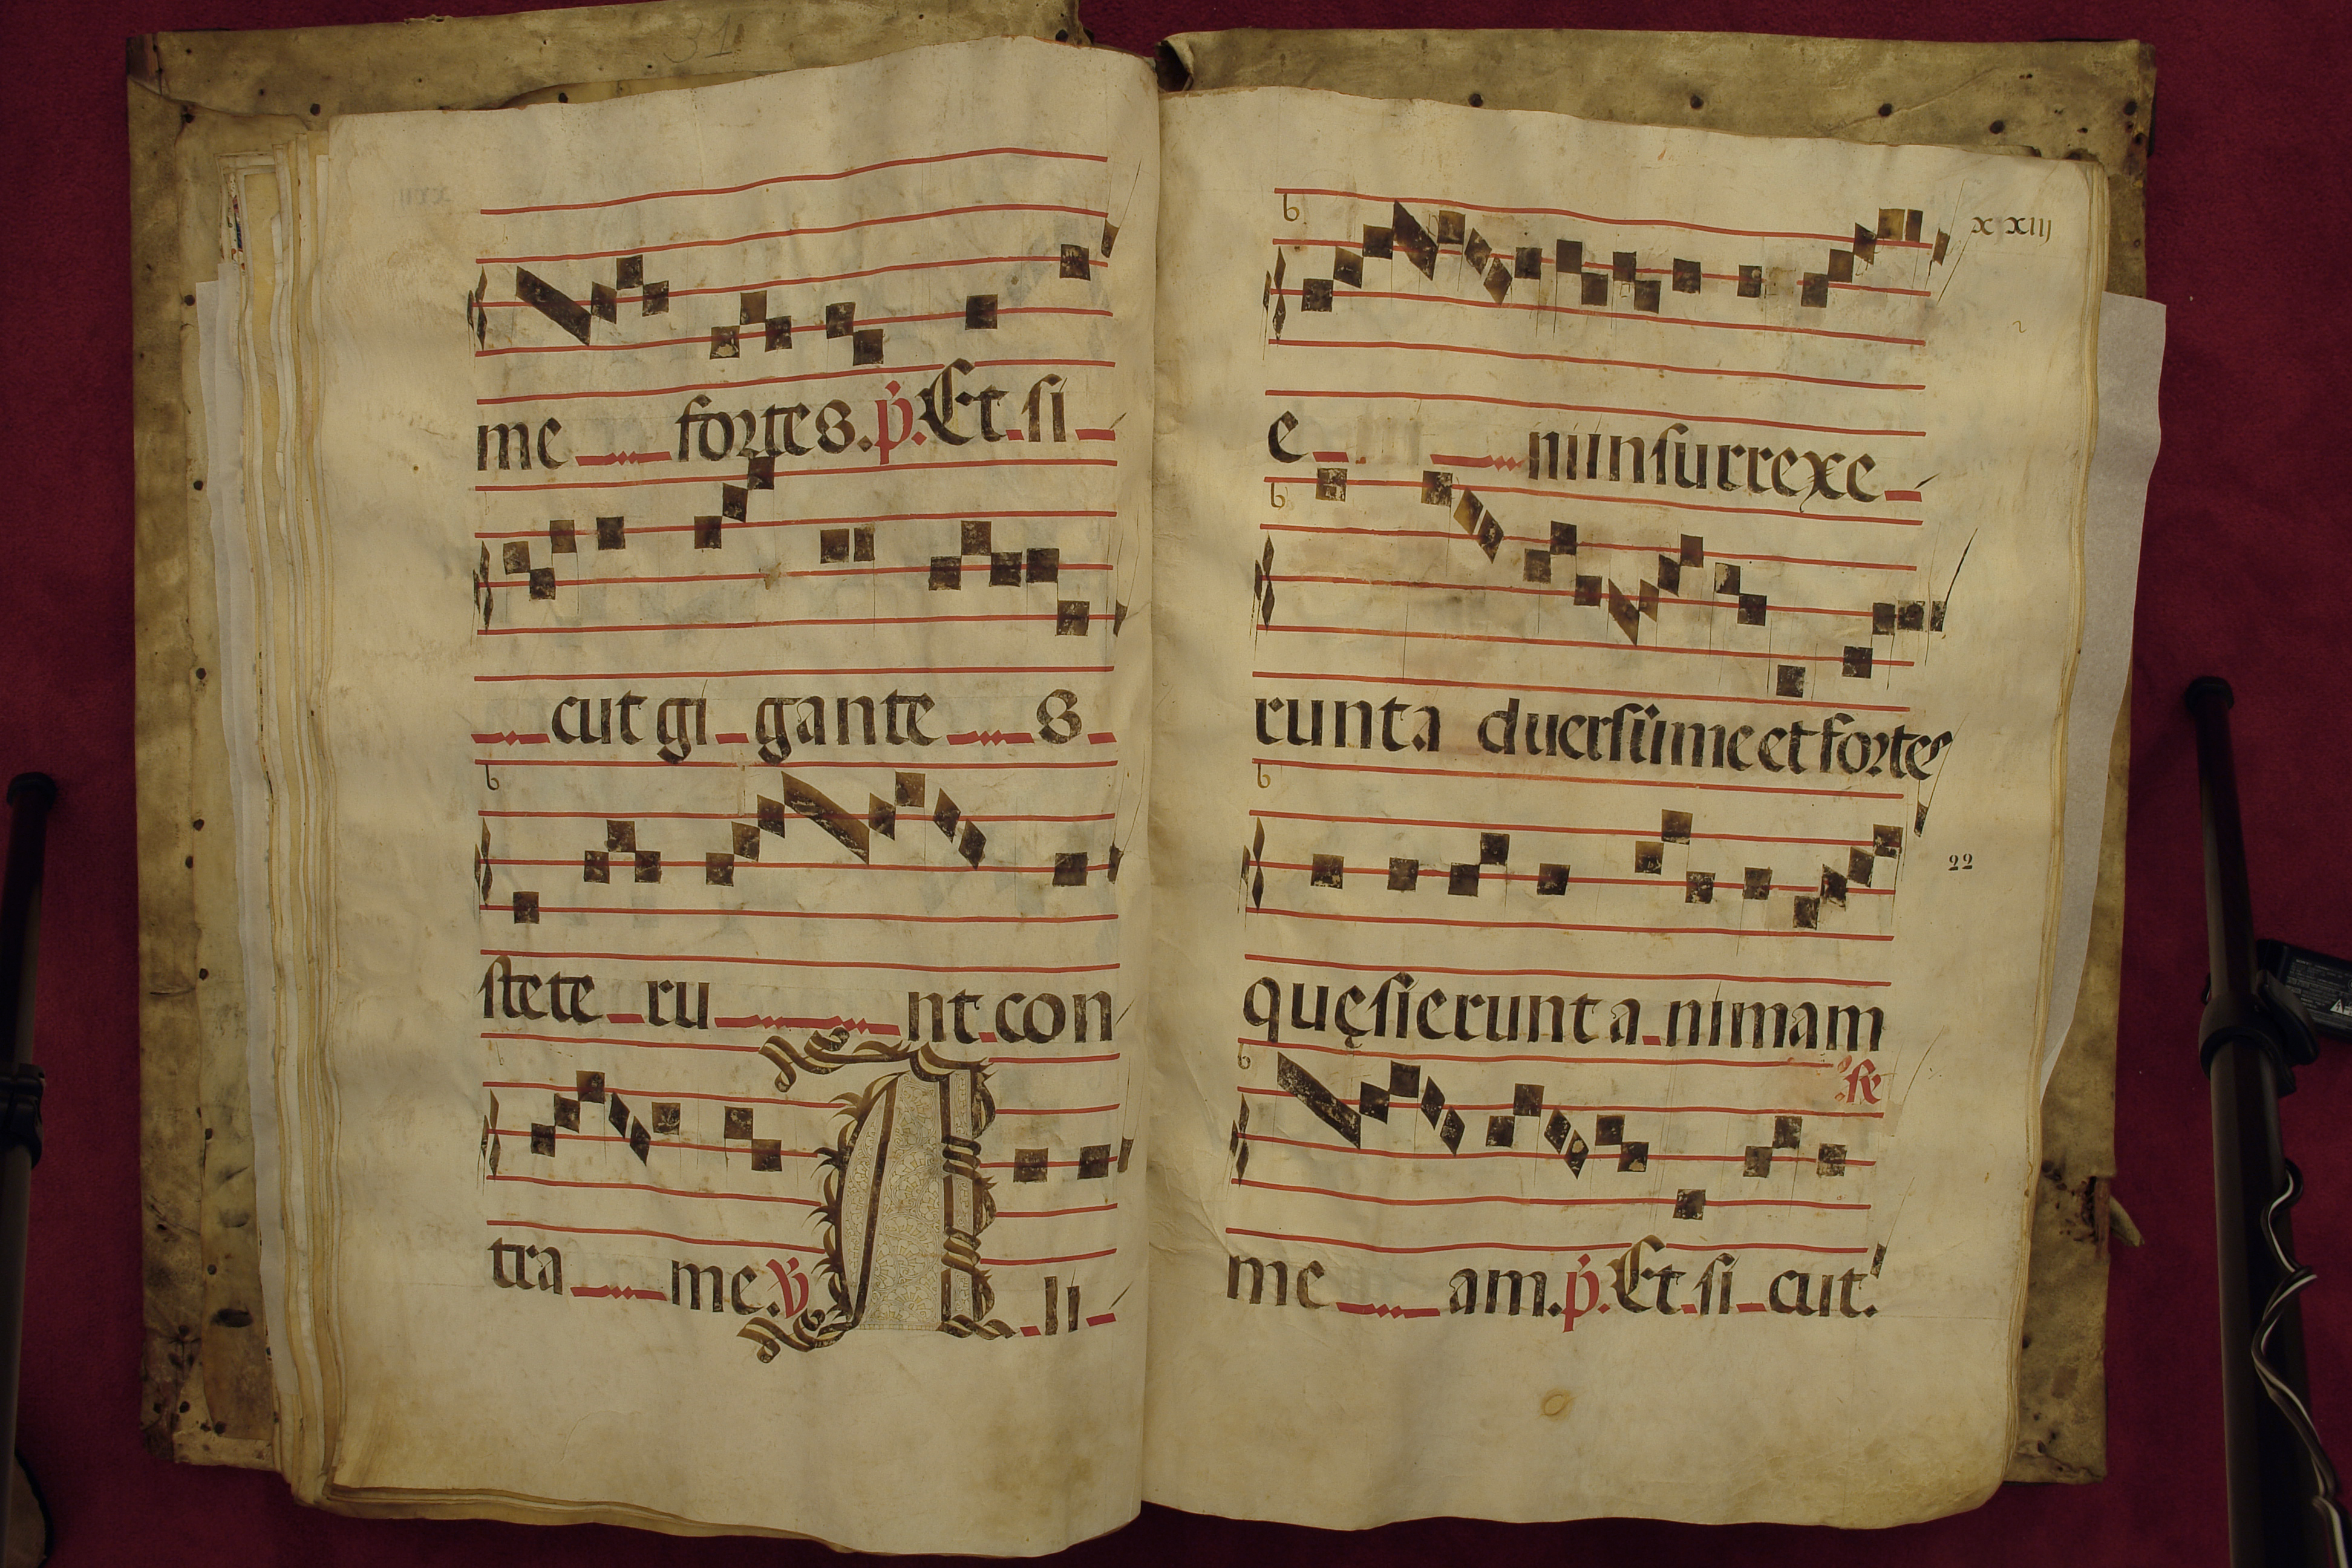 31
me fortes. p. Et si
cut gi gante s
stete ru nt con
tra me. v. A li
xxiij
e ni insurrexe
runt a duersũ me et fortes
22
quęsierunt a nimam
fe
me am. p. Et si cut.